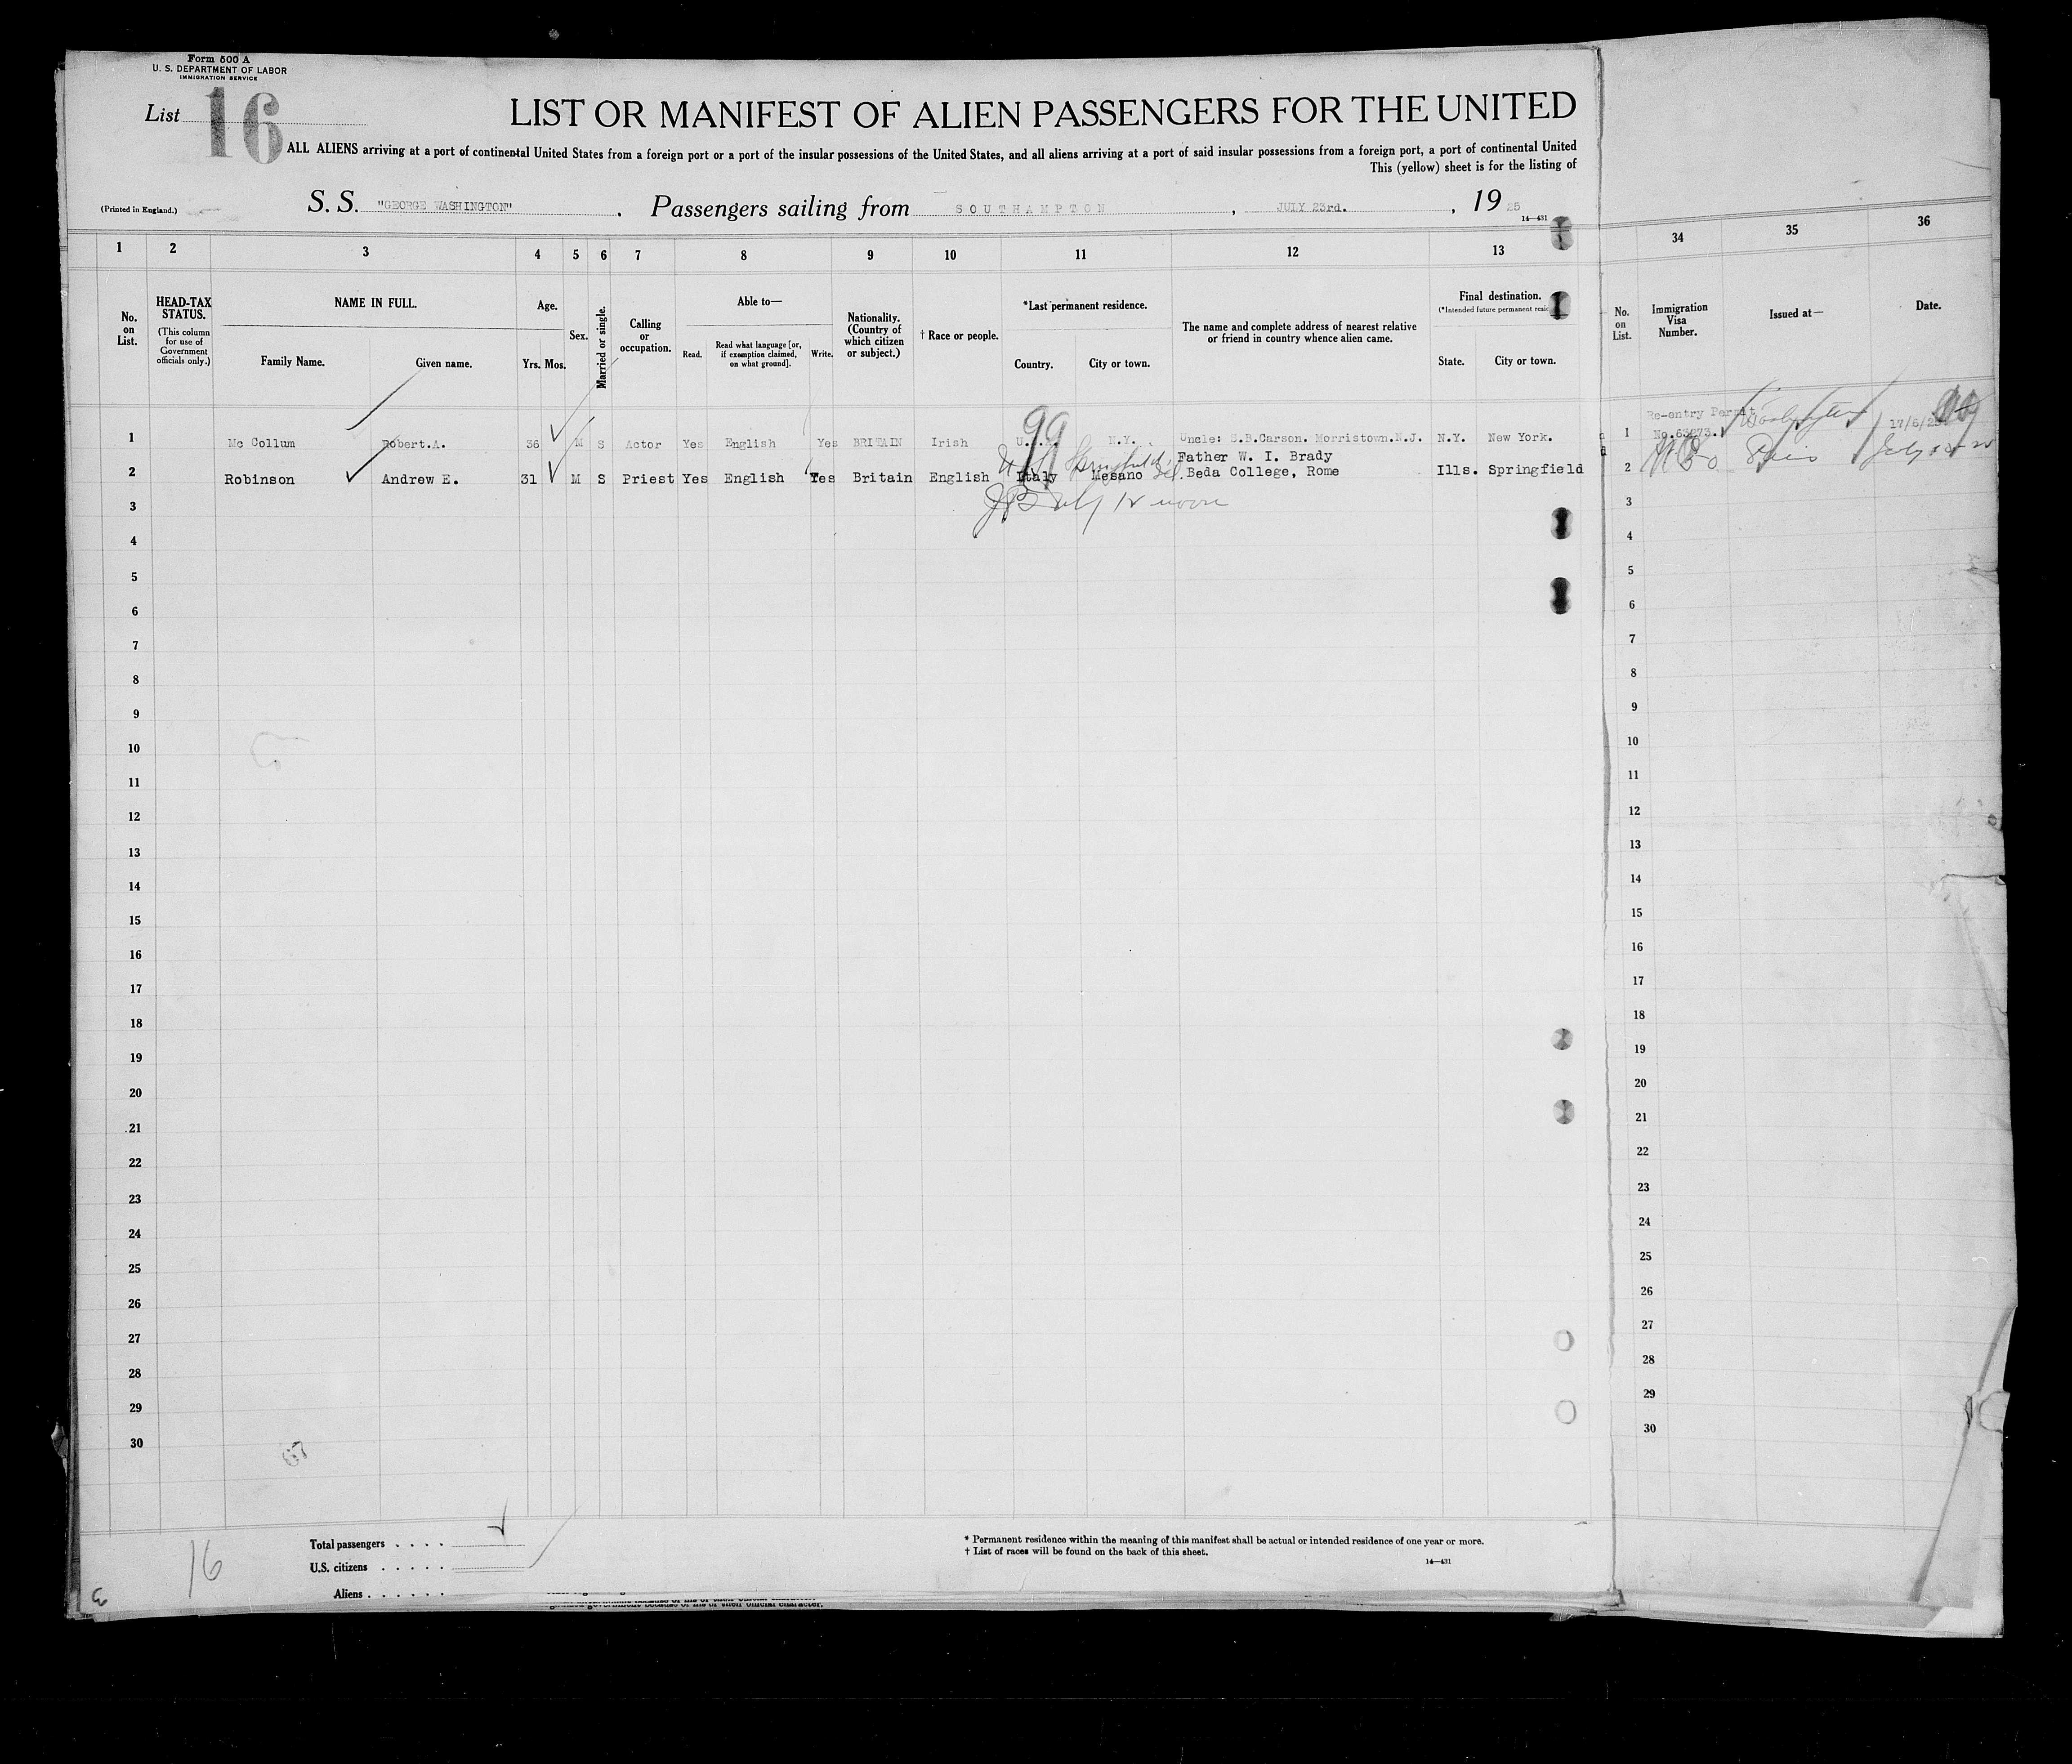 Form 500 A
U. S. DEPARTMENT OF LABOR
IMMIGRATION SERVICE
List 16
LIST OR MANIFEST OF ALIEN PASSENGERS FOR THE UNITED
ALL ALIENS arriving at a port of continental United States from a foreign port or a port of the insular possessions of the United States, and all aliens arriving at a port of said insular possessions from a foreign port, a port of continental United
This (yellow) sheet is for the listing of
(Printed in England.)
S. S. "GEORGE WASHINGTON" . Passengers sailing from SOUTHAMPTON , JULY 23rd. , 19 25
14—431
1 2 3 4 5 6 7 8 9 10 11 12 13 34 35 36
No. on List.
HEAD-TAX STATUS.
(This column for use of Government officials only.)
NAME IN FULL.
Family Name. Given name.
Age.
Yrs. Mos.
Sex.
Married or single.
Calling or occupation.
Able to—
Read. Read what language [or, if exemption claimed, on what ground]. Write.
Nationality. (Country of which citizen or subject.)
† Race or people.
*Last permanent residence.
Country. City or town.
The name and complete address of nearest relative or friend in country whence alien came.
Final destination.
(*Intended future permanent resi
State. City or town.
No. on List.
Immigration Visa Number.
Issued at—
Date.
99
1 Mc Collum Robert.A. 36 M S Actor Yes English Yes BRITAIN Irish N.Y. Uncle: S.B.Carson. Morristown.N.J. N.Y. New York. 1 Re-entry Permit No.63273. Washington
2 Robinson Andrew E. 31 M S Priest Yes English Yes Britain English Italy Mesano Father W. I. Brady
Beda College, Rome Ills. Springfield 2
3 3
4 4
5 5
6 6
7 7
8 8
9 9
10 10
11 11
12 12
13 13
14 14
15 15
16 16
17 17
18 18
19 19
20 20
21 21
22 22
23 23
24 24
25 25
26 26
27 27
28 28
29 29
30 30
16
Total passengers . . . .
U.S. citizens . . . . .
Aliens . . . . . .
* Permanent residence within the meaning of this manifest shall be actual or intended residence of one year or more.
† List of races will be found on the back of this sheet.
14—431